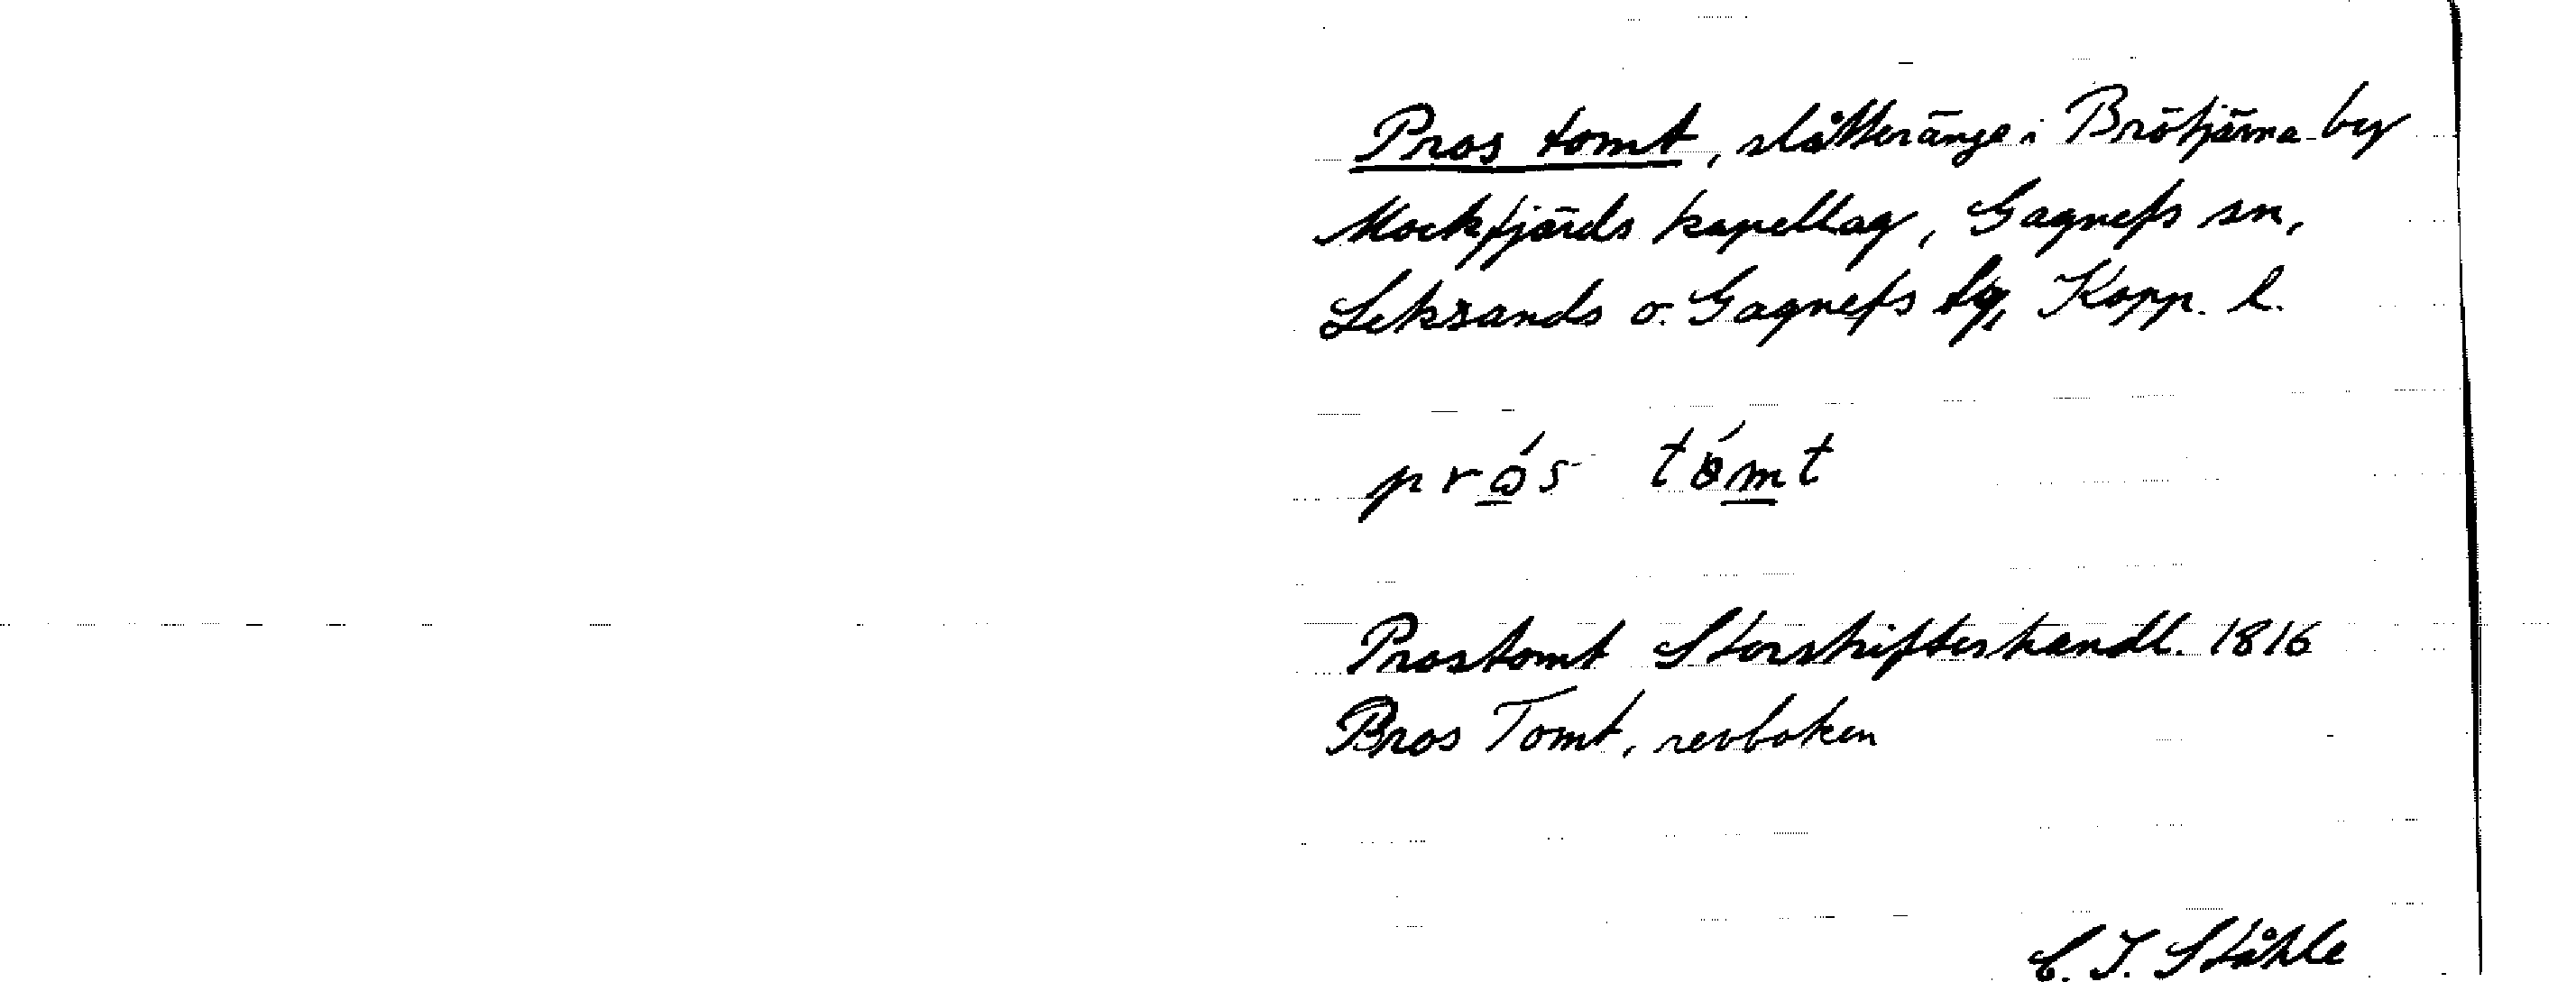 Pros tomt, slåtteränge i Brötjärna by
Mockfjärds kapellag, Gagnefs sn,
Leksands o. Gagnefs tg, Kopp. l.
prós tómt
Prostomt Storskifteshandl. 1816
Bros Tomt, revboken
C. I. Ståhle